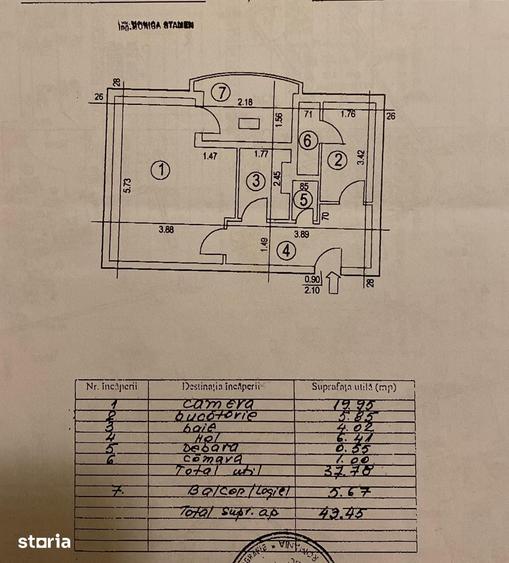 ing. MONICA STAMEN
28
26
7
2.18
1.56
71
1.76
26
6
1.47
1.77
2
3.42
1
3
2.45
85
5
5.73
70
3.88
3.89
4
1.49
0.90
2.10
28
Nr. încăperii Destinația încăperii Suprafața utilă (mp)
1 camera 19.95
2 bucătorie 5.85
3 baie 4.02
4 Hol 6.41
5 Debara 0.55
6 cămara 1.00
Total util 37.78
7 Balcon/Logie 5.67
Total supr. ap 43.45
storia
ROMANIA